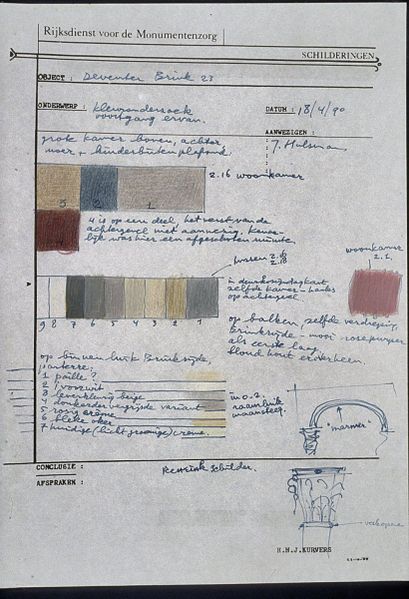 Rijksdienst voor de Monumentenzorg
SCHILDERINGEN
OBJECT : Deventer Brink 23
ONDERWERP : kleuronderzoek
voortgang ervan.
DATUM : 18/4/90
AANWEZIGEN :
J. Hulsman.
grote kamer boven, achter
moer + kinderbinten plafond.
2.16 woonkamer
3 2 1
4
4 is op een deel, het rest van de
achtergevel niet aanwezig.
lijk was hier een afgesloten ruimte.
tussen 2.16
2.18
woonkamer
2.1.
in deurkozijn
zelfde kamer - links
op achtergevel
9 8 7 6 5 4 3 2 1
op balken, zelfde verdieping,
Brinkzijde - mooi rose
als eerste laag
blond hout er doorheen.
op binnenluik Brinkzijde,
parterre:
1 paille?
2 voorwit
3 leverkleurig beige
4 donkerder vergrijsde variant
5 rosig crème
6 bleke oker
7 huidige (licht groenige) crème.
in o.a.
raamluik
"marmer"
CONCLUSIE :
schilder.
AFSPRAKEN :
H.H.J. KURVERS